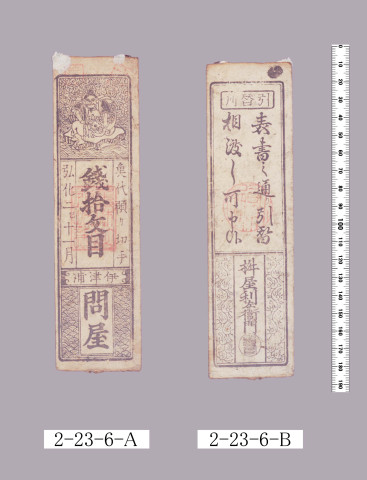 魚代預り切手
錢拾匁目
弘化二年十一月
伊津浦
問屋
引替所
表書之通引替
相渡し可申候
2-23-6-A
2-23-6-B
0
10
20
30
40
50
60
70
80
90
100
110
120
130
140
150
160
170
180
190